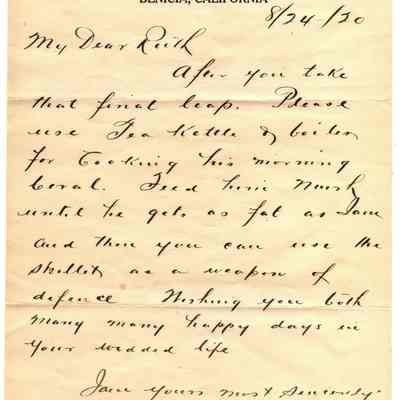 BENICIA, CALIFORNIA
8/24-/20
My Dear Ruth
After you take
that final leap. Please
use Tea Kettle & boiler
for Cooking his morning
Ceral. Feed him Mush
until he gets as fat as Jam
and then you can use the
Skillets as a weapon of
defence Wishing you both
many many happy days in
your wedded life
yours most Sincerely